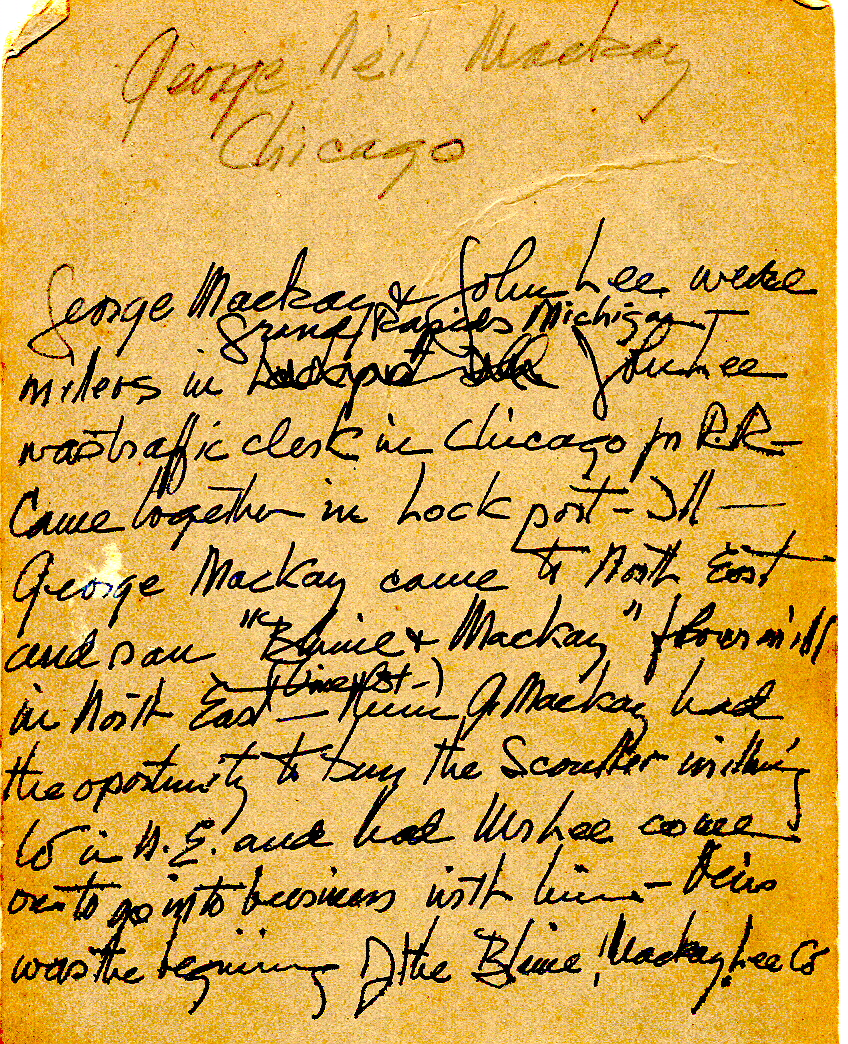 George Neil Mackay
Chicago
George Mackay & John Lee were
Grand Rapids Michigan –
millers in Lockport Ill John Lee
was traffic clerk in Chicago for R.R –
Came together in Lockport – Ill —
George Mackay came to North East
and saw "Blaine & Mackay" flour mill
in North East — then G Mackay had
the oportunity to buy the Scouller milling
Co in N.E. and had Mr Lee come
on to go into business with him – This
was the begining of the Blaine, Mackay, Lee Co